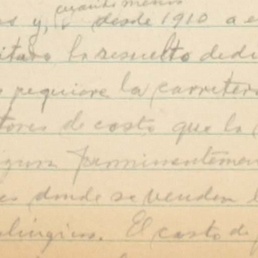 cuando menos
s y, desde 1910 a e
itado lo resuelto dedu
s requiere la carretera
tores de costo que la
permanentemen
es donde se venden l
El costo de